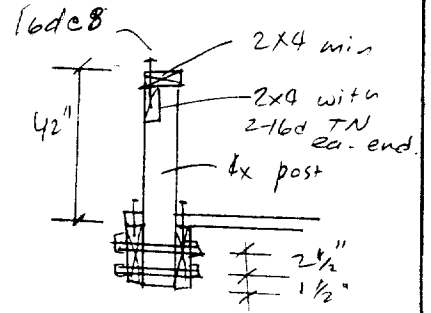 16d@8
2x4 min
2x4 with
2-16d TN
ea. end.
42"
4x post
2 1/2"
1 1/2"